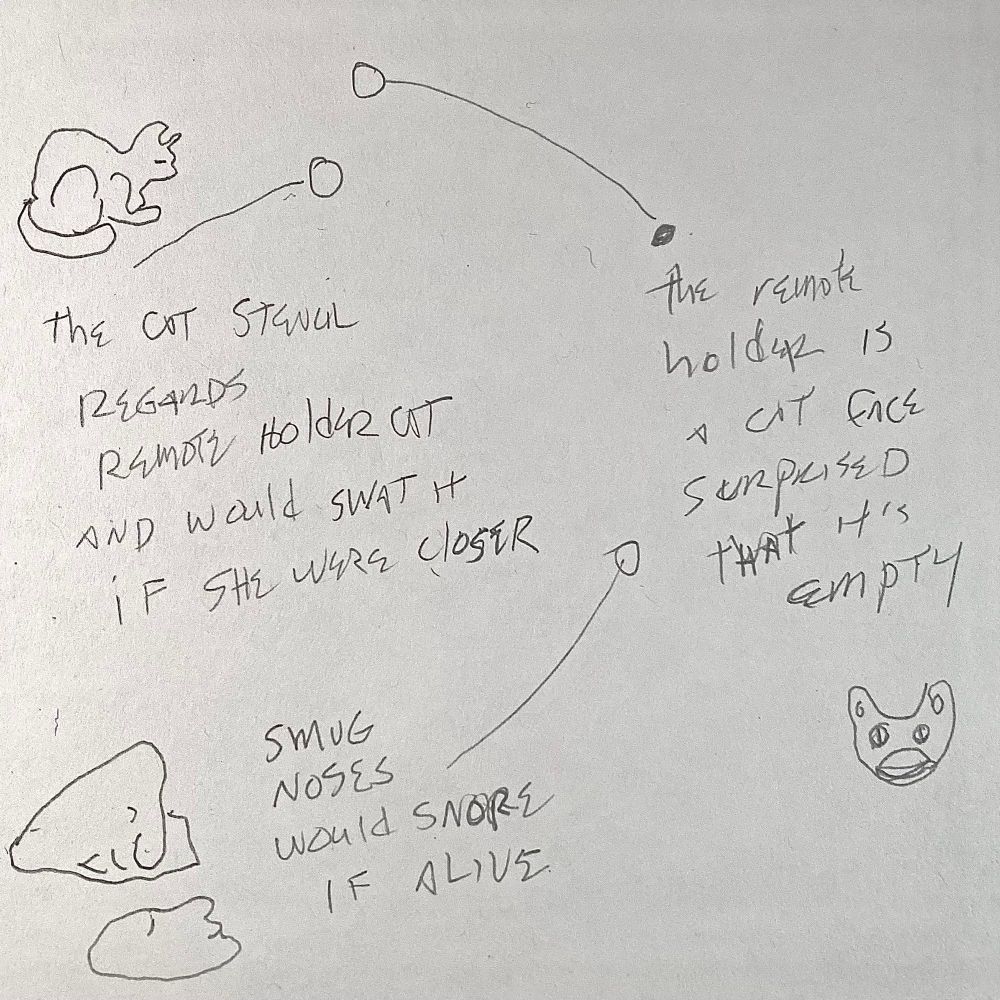 thE CAT STENCIL
REGARDS
REMOTE HOLdER CAT
AND WOuld SWAT it
iF SHE WERE CLOSER
the REMOtE
holdER IS
A CAT FACE
SURPRISED
THAT it's
EMPTY
SMUG
NOSES
WOuld SNORE
IF ALIVE.